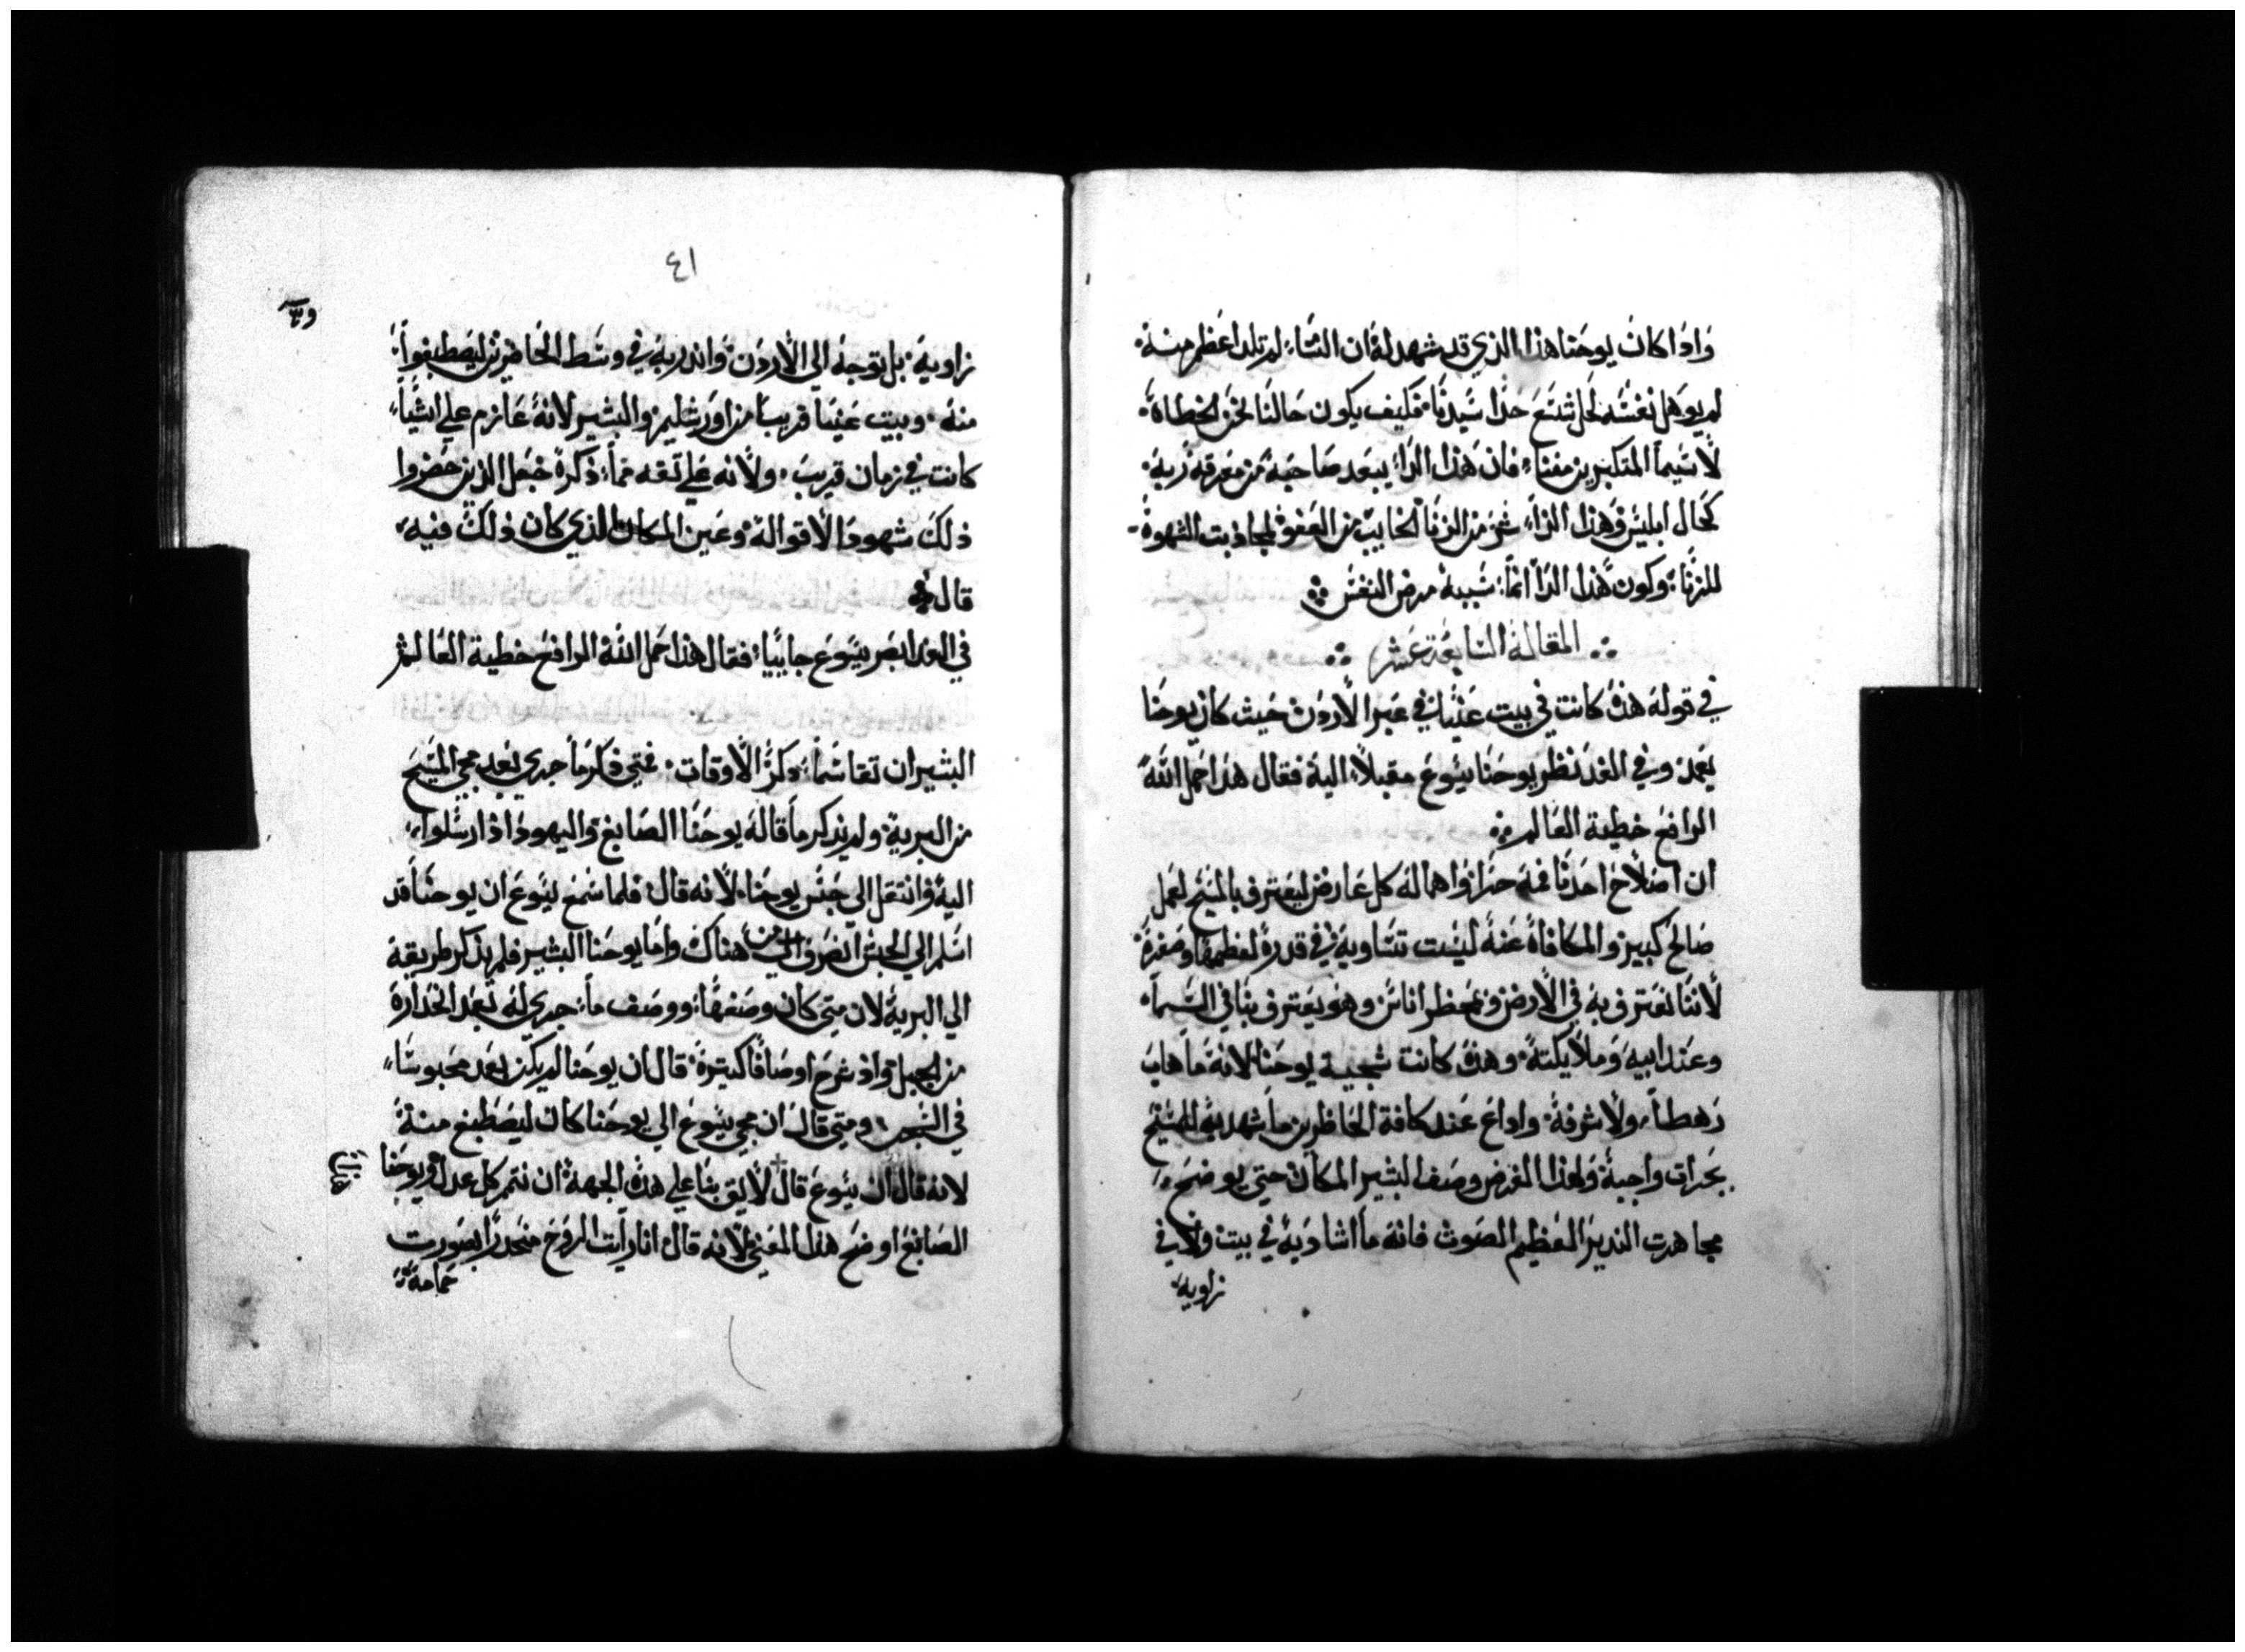 وَاذا كانَ يوحَنا هذا الذي قد شهد لهُ ان النسَاء لم تلد اعَظم منهُ
لم يوَهل نفسَه لحَل شسَع حَذا سَيدنا فكيف يكون حَالنَا نحَن الخطاة
لا سَيما المتكبرين مننا فان هَذا الدَا يبعَد صَاحبهُ من مَعرفة ربهَ
كحَال ابليس وَهذا الدَا شر من الزنا الخايب من العَفو لمجاذبت الشهوة
للزنا وكون هَذا الدَا انما شبيهُ مرض النفسَ
المقالة السَابعَة عَشر
في قولهَ هذهَ كانت في بيت عَنيَا في عَبر الاردَن حَيث كان يوحَنا
يعَمد وفي الغد نظر يوحَنا يسَوعَ مقبلاً اليهَ فقال هذا حَمل اللهَ
الرافعَ خطية العَالم
ان اصَلاحَ احَدنا فمهَ حَذرا واهمالهَ كل عَارض ليعَترف بالمسَيح لعَمل
صَالحَ كبير والمكافاة عَنهَ ليسَت تسَاويهَ في قدرهَ لعَظمها وصَغرهَ
لاننا نعَترف بهَ في الارض ونحَظر اناسَ وهو يعَترف بنا في السَمآ
وعَند ابيهَ وَملايكتهَ وهذهَ كانت سَجية يوحَنا لانهَ مَا هابَ
رَهطاً ولا شرفهَ واداعَ عَند كافة الحَاظرين ما شهد بهَ للمسَيح
بجَرات واجبة وَلهذا الغرض وصَف البشير المكان حَتي يوضحَ
مجاهرت النديرَ العَظيم الصَوت فانهَ ما اشادَ بهَ في بيت ولا في
زاويهَ
٤١
زاويهَ بل توجهَ الي الاردَن واندر بهَ في وسَط الحَاضرين ليصَطبغوا
منهَ وبيت عَنيَا قريبَا من اورشليم والبشير لانهَ عَازم علي اشيَا
كانت في زمان قريبَ ولانه عَلي تقه مما ذكرهَ جَعَل الذين حَضروا
ذلكَ شهودَا لاقوالهَ وعَين المكان الذي كان ذلكَ فيهَ
قال
في الغد ابصَر يسَوعَ جاييَا فقال هذا حَمل اللهَ الرافعَ خطية العَالم
البشيران تقاسَما ذكرَ الاوقات فمتي ذكر مَا جري بَعد مجي المسَيحَ
من البرية ولم يذكر ما قالهَ يوحَنا الصَابغ واليهودَ اذ ارسَلوا
اليهَ وانتقل الي حَبسَ يوحَنا لانه قال فلما سَمعَ يسَوعَ ان يوحَنا قد
اسَلم الي الحَبسَ انصَرف من هناكَ واما يوحَنا البشير فلم يذكر طريقهَ
الي البرية لان متي كان وصَفها ووصَف ما جري لهَ بَعد انحَدارهَ
من الجبل واذ شرحَ اوصَافا كثيرةَ قال ان يوحَنا لم يكن بَعد محَبوسَا
في الحبس ومتي قال ان مجي يسَوعَ الي يوحَنا كان ليصَطبغ منهَ
لانه قال ان يسَوعَ قال لايق بنا علي هذهَ الجهةَ ان نتمم كل عدل ويوحَنا
الصَابغَ اوضحَ هذا المعَني لانهَ قال انا رايت الروَحَ منحَدرَا بصَورت
حَمامةَ